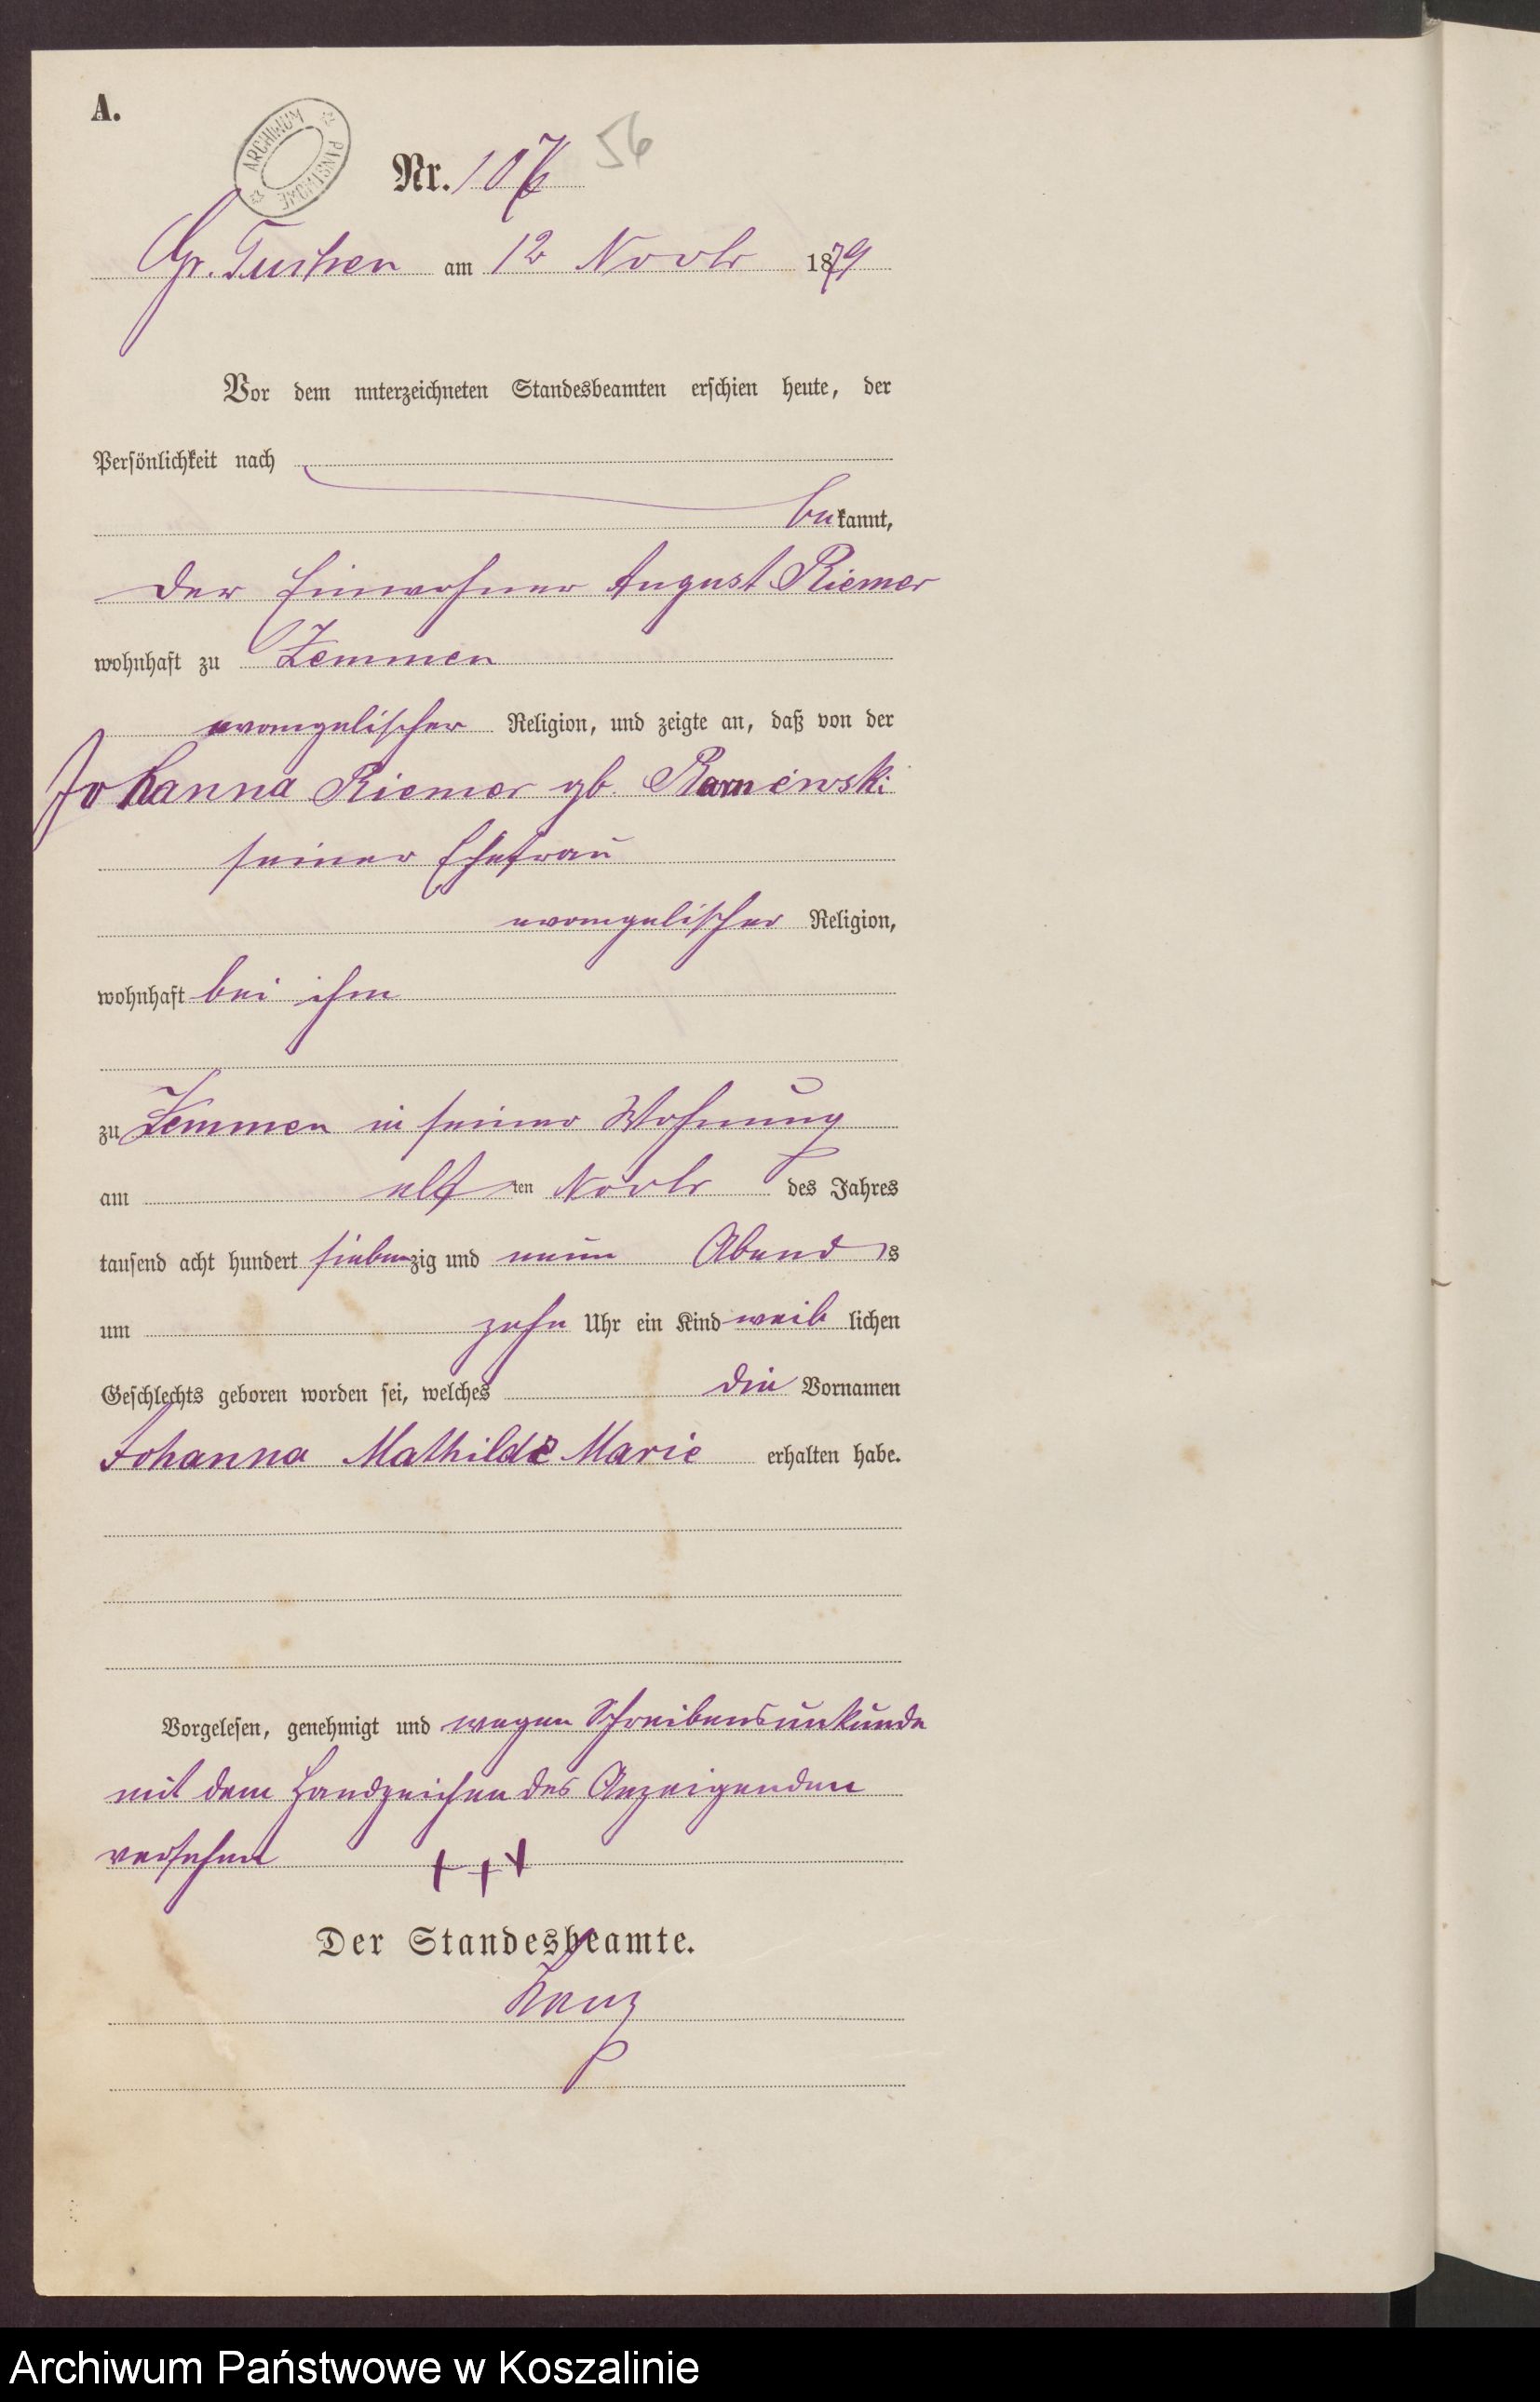 A.
ARCHIWUM PAŃSTWOWE
Nr. 107 56
Gr. Tuchen am 12 Novbr 1879
Vor dem unterzeichneten Standesbeamten erschien heute, der
Persönlichkeit nach
bekannt,
der Einwohner August Riemer
wohnhaft zu Zemmen
evangelischer Religion, und zeigte an, daß von der
Johanna Riemer gb.
seiner Ehefrau
evangelischer Religion,
wohnhaft bei ihm
zu Zemmen in seiner Wohnung
am elf ten Novbr des Jahres
tausend acht hundert siebenzig und neun Abends
um zehn Uhr ein Kind weiblichen
Geschlechts geboren worden sei, welches die Vornamen
Johanna Mathilde Marie erhalten habe.
Vorgelesen, genehmigt und wegen Schreibensunkunde
mit dem Handzeichen des Anzeigenden
versehen +++
Der Standesbeamte.
Archiwum Państwowe w Koszalinie